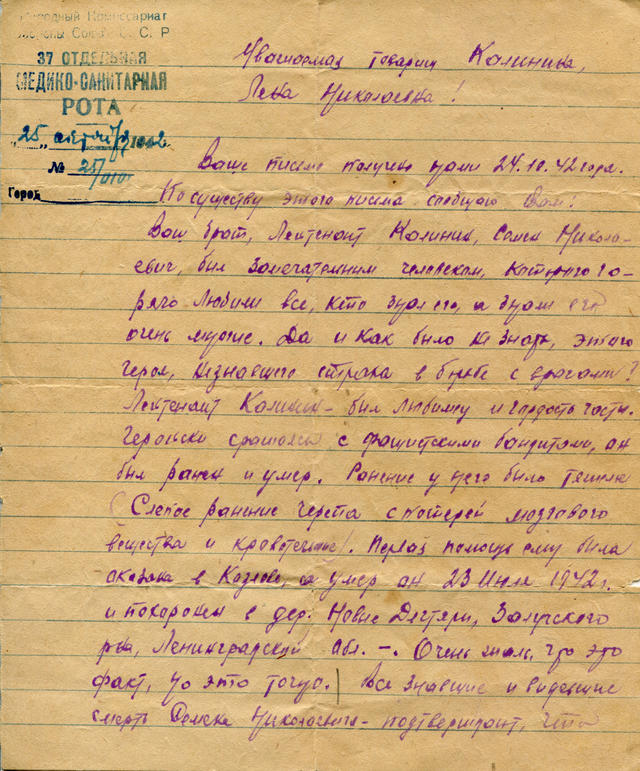 Народный Комиссариат
Обороны Союза С. С. Р
37 ОТДЕЛЬНАЯ
МЕДИКО-САНИТАРНАЯ
РОТА
"25" октября 1942
№ 25/
Город
Уважаемая товарищ Калинина,
Лена Николаевна!
Ваше письмо получено нами 24.10.42 года.
По существу этого письма сообщаю Вам:
Ваш брат, Лейтенант Калинин, Семен Никола-
евич, был замечательным человеком, которого го-
рячо любили все, кто знал его, а знали его
очень многие. Да и как было не знать, этого
героя, незнавшего страха в борьбе с врагами?
Лейтенант Калинин - был любимец и гордость части.
Геройски сражаясь с фашистскими бандитами, он
был ранен и умер. Ранение у него было тяжелое
(Слепое ранение черепа с потерей мозгового
вещества и кровотечение). Первая помощь ему была
оказана в Козлове, умер он 23 Июля 1942 г.
и похоронен в дер. Новые Дегтяри, Залучского
р-на, Ленинградской обл. -. Очень жаль, что это
факт, но это точно. Все знавшие и видевшие
смерть Семена Николаевича - подтверждают, что